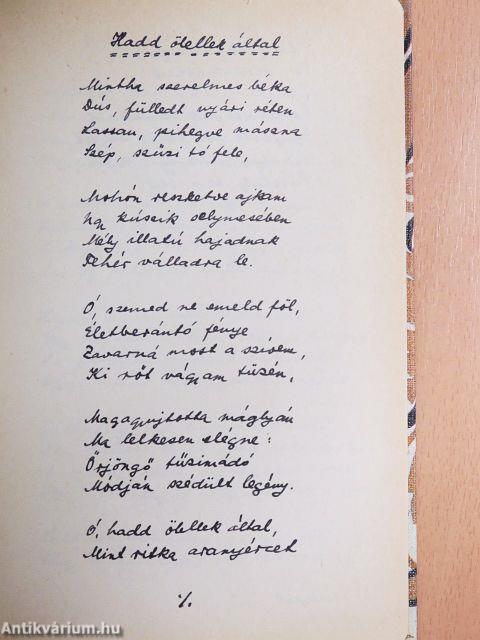 Hadd ölellek által
Mintha szerelmes béka
Dús, fülledt nyári réten
Lassan, pihegve mászna
Szép, szűzi tó fele,
Mohón reszketve ajkam
Úgy kúszik selymesében
Mély illatú hajadnak
Fehér válladra le.
Ó, szemed ne emeld föl,
Életberántó fénye
Zavarná most a szívem,
Ki rőt vágyam tüzén,
Magagyujtotta máglyán
Ma lelkesen elégne:
Őrjöngő tűzimádó
Módján szédült legény.
Ó, hadd ölellek által,
Mint ritka aranyércet
%.
Antikvárium.hu